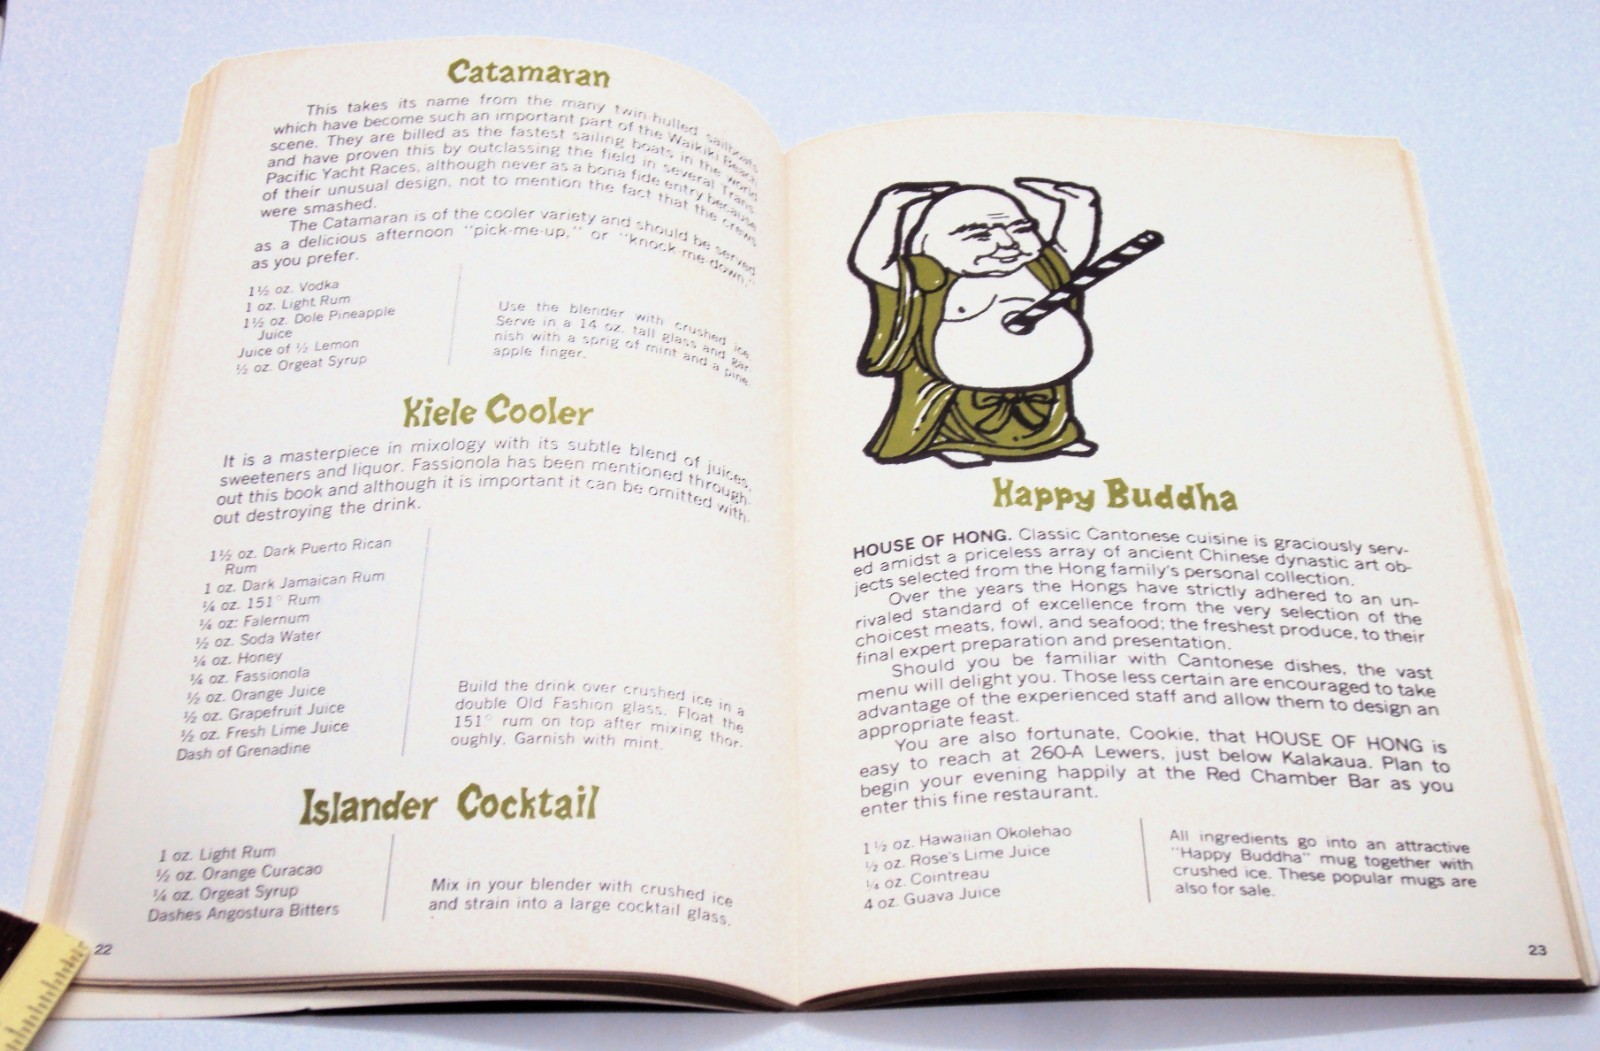 Catamaran
This takes its name from the many twin-hulled sailboats
which have become such an important part of the Waikiki Beach
scene. They are billed as the fastest sailing boats in the world
and have proven this by outclassing the field in several Trans-
Pacific Yacht Races, although never as a bona fide entry because
of their unusual design, not to mention the fact that the crews
were smashed.
The Catamaran is of the cooler variety and should be served
as a delicious afternoon "pick-me-up," or "knock-me-down,"
as you prefer.
1½ oz. Vodka
1 oz. Light Rum
1½ oz. Dole Pineapple
Juice
Juice of ½ Lemon
½ oz. Orgeat Syrup
Use the blender with crushed ice.
Serve in a 14 oz. tall glass and gar-
nish with a sprig of mint and a pine-
apple finger.
Kiele Cooler
It is a masterpiece in mixology with its subtle blend of juices,
sweeteners and liquor. Fassionola has been mentioned through-
out this book and although it is important it can be omitted with-
out destroying the drink.
1½ oz. Dark Puerto Rican
Rum
1 oz. Dark Jamaican Rum
¼ oz. 151° Rum
¼ oz: Falernum
½ oz. Soda Water
¼ oz. Honey
¼ oz. Fassionola
½ oz. Orange Juice
½ oz. Grapefruit Juice
½ oz. Fresh Lime Juice
Dash of Grenadine
Build the drink over crushed ice in a
double Old Fashion glass. Float the
151° rum on top after mixing thor-
oughly. Garnish with mint.
Islander Cocktail
1 oz. Light Rum
½ oz. Orange Curacao
¼ oz. Orgeat Syrup
Dashes Angostura Bitters
Mix in your blender with crushed ice
and strain into a large cocktail glass.
22
Happy Buddha
HOUSE OF HONG. Classic Cantonese cuisine is graciously serv-
ed amidst a priceless array of ancient Chinese dynastic art ob-
jects selected from the Hong family's personal collection.
Over the years the Hongs have strictly adhered to an un-
rivaled standard of excellence from the very selection of the
choicest meats, fowl, and seafood; the freshest produce, to their
final expert preparation and presentation.
Should you be familiar with Cantonese dishes, the vast
menu will delight you. Those less certain are encouraged to take
advantage of the experienced staff and allow them to design an
appropriate feast.
You are also fortunate, Cookie, that HOUSE OF HONG is
easy to reach at 260-A Lewers, just below Kalakaua. Plan to
begin your evening happily at the Red Chamber Bar as you
enter this fine restaurant.
1½ oz. Hawaiian Okolehao
½ oz. Rose's Lime Juice
¼ oz. Cointreau
4 oz. Guava Juice
All ingredients go into an attractive
"Happy Buddha" mug together with
crushed ice. These popular mugs are
also for sale.
23